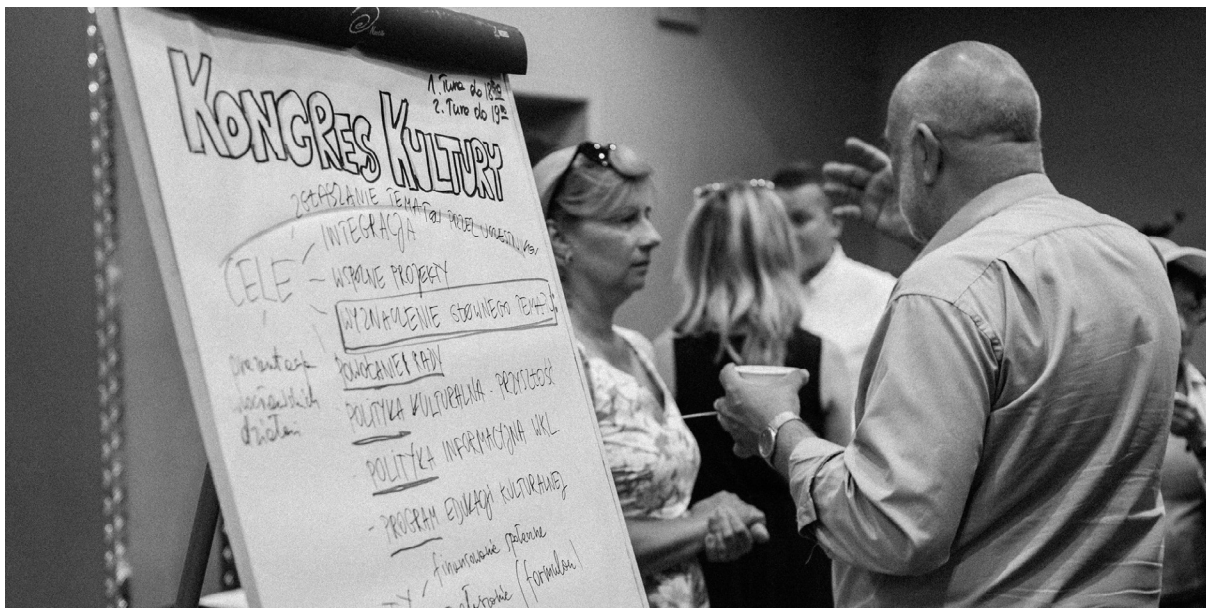 KONGRES KULTURY
1. Tura do 18⁰⁰
2. Tura do 19⁰⁰
ZGŁASZANIE TEMATÓW PRZEZ UCZESTNIKÓW
INTEGRACJA
CELE
- WSPÓLNE PROJEKTY
WYZNACZENIE GŁÓWNEGO
POWOŁANIE RADY
prezentacja
działań
POLITYKA KULTURALNA - PRZYSZŁOŚĆ
- POLITYKA INFORMACYJNA WKL
- PROGRAM EDUKACJI KULTURALNEJ
finansowanie społeczne